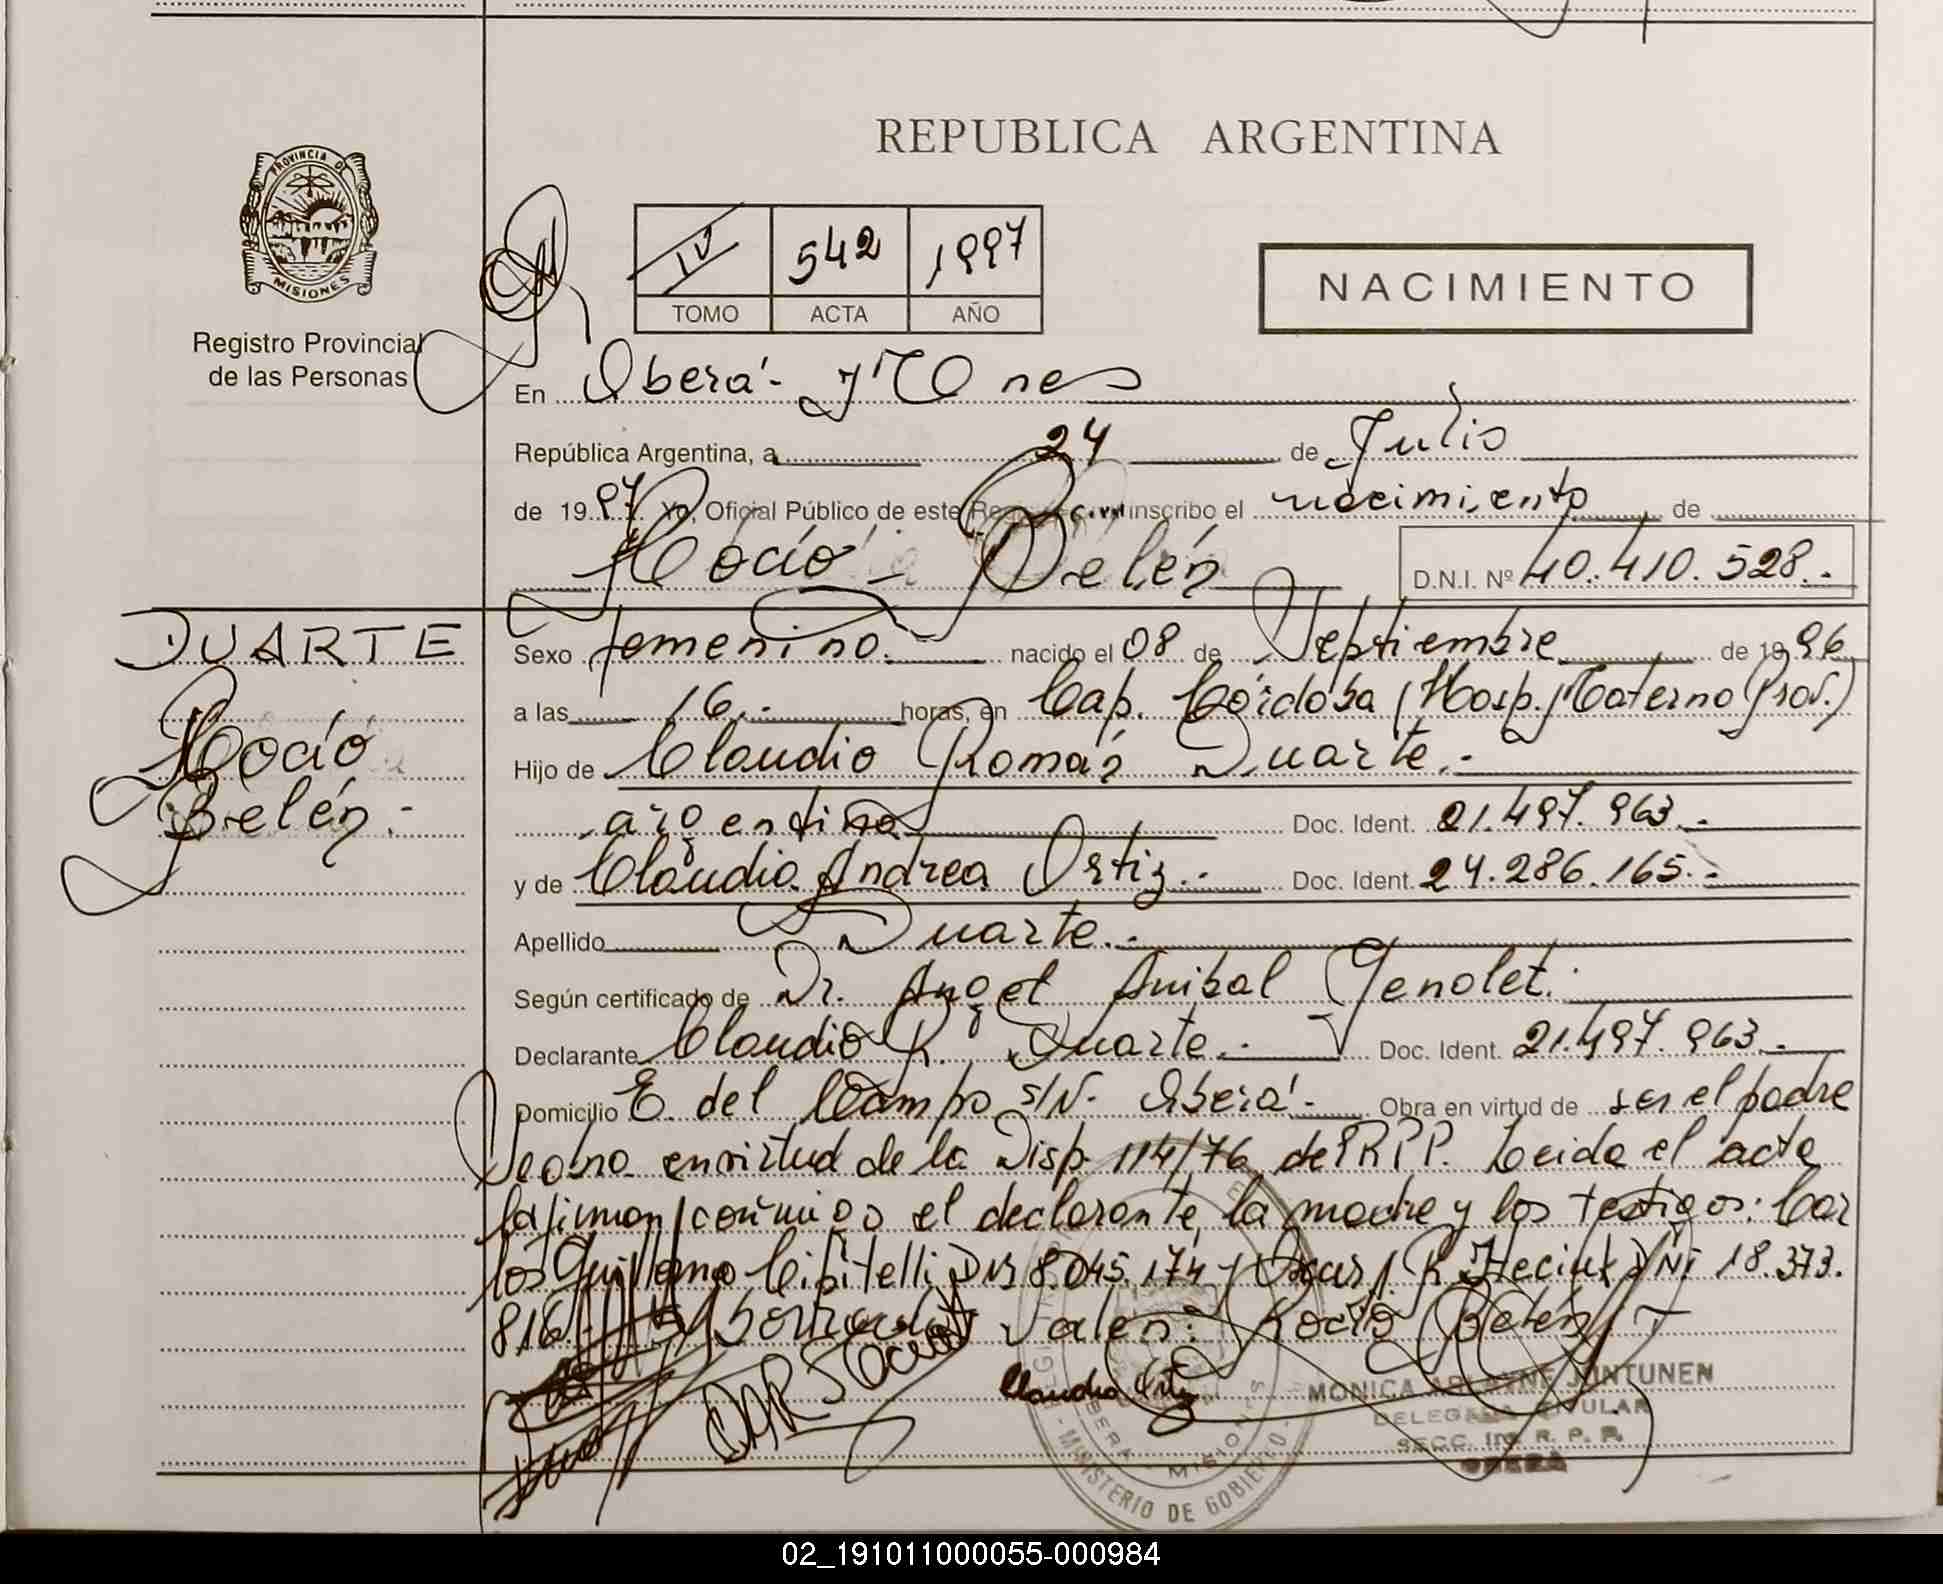 REPUBLICA ARGENTINA
PROVINCIA DE
MISIONES
Registro Provincial
de las Personas
IV 542 1997
TOMO ACTA AÑO
NACIMIENTO
En Oberá - Mnes
República Argentina, a 24 de Julio
de 1997 Yo, Oficial Público de este Reg. Civil inscribo el nacimiento de
Rocío - Belén
D.N.I. Nº 40.410.528.-
DUARTE
Rocío
Belén.-
Sexo femenino. nacido el 08 de Septiembre de 1996
a las 16.- horas, en Cap. Córdoba (Hosp. Materno Prov.)
Hijo de Claudio Román Duarte.-
argentino Doc. Ident. 21.497.963.-
y de Claudia Andrea Ortiz.- Doc. Ident. 24.286.165.-
Apellido Duarte.-
Según certificado de Dr. Angel Anibal Genolet.
Declarante Claudio R. Duarte.- Doc. Ident. 21.497.963.-
Domicilio E. del Campo s/N. Oberá.- Obra en virtud de ser el padre
en virtud de la Disp. 114/76 del RPP. Leida el acta
la firman conmigo el declarante, la madre y los testigos: Car
los Guillermo Cibitelli DNI 8.045.174 y Oscar R. DNI 18.373.
816. borrado: Valen: Rocío Belén
Claudia Ortiz
MONICA ARIANNE JUNTUNEN
DELEGADA TITULAR
SECC. R. P. P.
OBERA
OBERA - MISIONES
MINISTERIO DE GOBIERNO
02_191011000055-000984